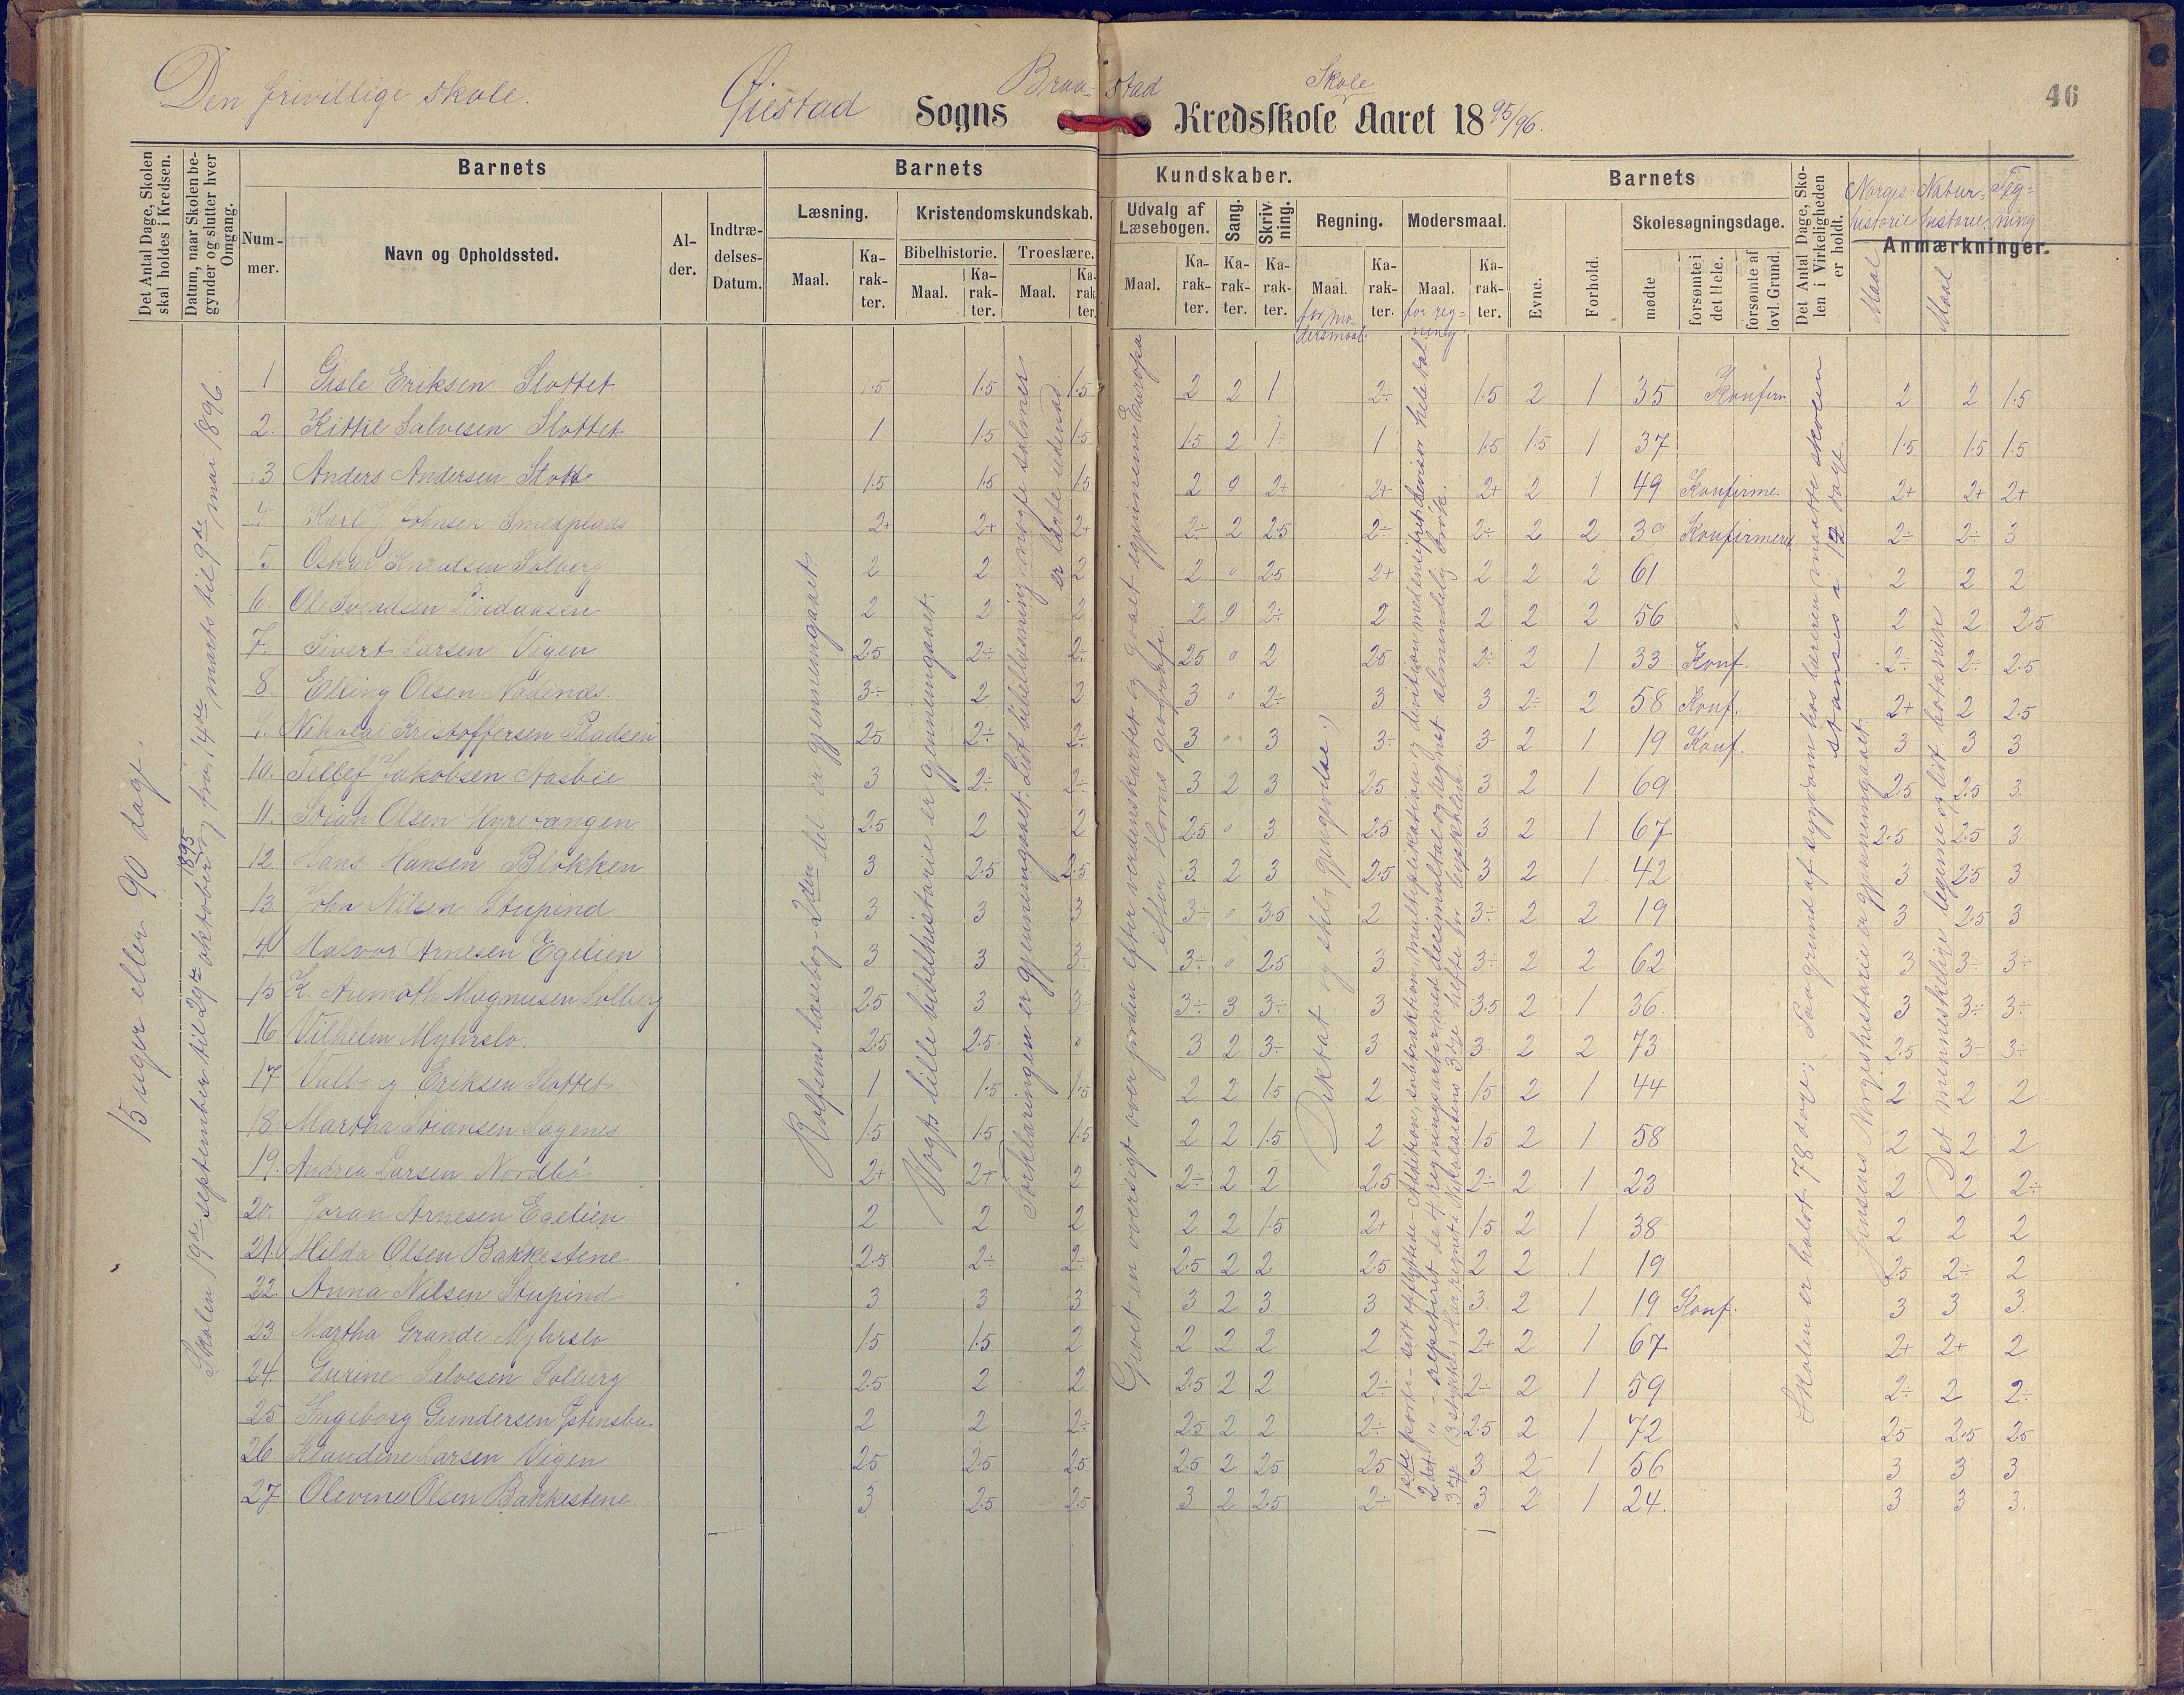 Den frivillige skole.
Øiestad Sogns Braastad Skole Kredsskole Aaret 1895/96.
46
Det Antal Dage, Skolen skal holdes i Kredsen.
Datum, naar Skolen begynder og slutter hver Omgang.
Barnets
Nummer.
Navn og Opholdssted.
Alder.
Indtrædelses-Datum.
Barnets Kundskaber.
Læsning.
Maal.
Karakter.
Kristendomskundskab.
Bibelhistorie.
Maal.
Karakter.
Troeslære.
Maal.
Karakter.
Udvalg af Læsebogen.
Maal.
Karakter.
Sang.
Karakter.
Skrivning.
Karakter.
Regning.
Maal.
for modersmaal.
Karakter.
Modersmaal.
Maal.
for regning.
Karakter.
Barnets
Evne.
Forhold.
Skolesøgningsdage.
mødte
forsømte i det Hele.
forsømte af lovl. Grund.
Det Antal Dage, Skolen i Virkeligheden er holdt.
Norges historie
Natur-historie
Tegning
Anmærkninger.
Maal
Maal
15 uger eller 90 dage.
Skolen 19de september til 29de oktober 1895 og fra 4de marts til 9de mai 1896.
Rolfsens læsebog 2den del er gjennemgaaet.
Vogts lille bibelhistorie er gjennemgaaet.
Forklaringen er gjennemgaaet. Lidt bibellæsning, nogle salmer er lærte udenad.
Givet en oversigt over jorden efter verdenskartet og gaaet igjennem Europa efter Horns geografi.
Diktat og skil. gjengivelse.)
1ste parti - lidt opflyttede - Addition, subtraktion, multiplikation og division med ensifret divisor hele tal.
2det " - repeteret de 4 regningsarter med decimaltal og regnet almindelig brøk.
3die (3 stykker) Har regnet i Nikolaisens 3die hefte for byskolen.
Skolen er holdt 78 dage; Paa grund af sygdom hos læreren maatte skolen stanses i 12 dage.
Jensens Norgeshistorie er gjennemgaaet.
Det menneskelige legeme og lidt botanik.
1 Gisle Eriksen Slottet 1.5 1.5 1.5 2 2 1 2÷ 1.5 2 1 35 Konfirm 2 2 1.5
2. Kittil Salvesen Slottet 1 1.5 1.5 1.5 2 1÷ 1 1.5 1.5 1 37 1.5 1.5 1.5
3 Anders Andersen Slotte 1.5 1.5 1.5 2 0 2+ 2+ 2+ 2 1 49 Konfirme. 2+ 2+ 2+
4 Karl J Johnsen Smedplads 2+ 2+ 2+ 2÷ 2 2.5 2÷ 2÷ 2 2 39 Konfirmered 2÷ 2÷ 3
5. Oskar Knudsen Solberg 2 2 2 2 0 2.5 2+ 2 2 2 61 2 2 2
6. Ole Svendsen Lindaasen 2 2 2 2 0 2÷ 2 2 2 2 56 2 2 2.5
7. Sivert Larsen Vigen 2.5 2÷ 2÷ 2.5 0 2 2.5 2÷ 2 1 33 Konf. 2÷ 2÷ 2.5
8. Elling Olsen Nodenes. 3÷ 2 2 3 0 2÷ 3 3 2÷ 2 58 Konf. 2+ 2 2.5
9. Nikolai Kristoffersen Pladsen 2.5 2÷ 2÷ 3 0 3 3÷ 3 2 1 19 Konf. 3 3 3
10. Tellef Jakobsen Aasbie 3 2÷ 2÷ 3 2 3 2.5 3 2 1 69 2.5 2.5 3
11. Stian Olsen Myrevangen 2.5 2 2 2.5 0 3 2.5 3 2 1 67 2.5 2.5 3
12. Hans Hansen Blokken 3 2.5 2.5 3 2 3 2.5 3 2 1 42 3 2.5 3
13. John Nilsen Stupind 3 3 3 3÷ 0 3.5 2 3÷ 2 2 19 3 2.5 3
14 Halvor Arnesen Egelien 3 3 3÷ 3÷ 0 2.5 3 3÷ 2 2 62 3 3÷ 3÷
15 K. Magnusen Solberg 2.5 3 3 3÷ 3 3÷ 3 3.5 2 1 36 3 3÷ 3÷
16 Vilhelm Myhrslo. 2.5 2.5 0 3 2 3÷ 3 3 2 2 73 2.5 3÷ 3÷
17 Valborg Eriksen Slottet 1 1.5 1.5 2 2 1.5 2 1.5 2 1 44 2 2 2
18 Martha Stiansen Sagenes 1.5 1.5 1.5 2 2 1.5 2 1.5 2 1 58 2 2 2
19. Andrea Larsen Nordbø 2+ 2+ 2 2÷ 2 2 2.5 2÷ 2 1 23 2 2 2÷
20. Joran Arnesen Egelien 2 2 2 2 2 1.5 2+ 1.5 2 1 38 2 2 2
21. Hilda Olsen Bakkestene 2.5 2÷ 2÷ 2.5 2 2 2.5 2 2 1 19 2.5 2÷ 2
22. Anna Nilsen Stupind 3 3 3 3 2 3 3 3 2 1 19 Konf. 3 3 3
23. Martha Grande Myhrslo 1.5 1.5 2 2 2 2 2 2+ 2 1 67 2+ 2+ 2
24. Gurine Salvesen Solberg 2.5 2 2 2.5 2 2 2÷ 2÷ 2 1 59 2÷ 2 2÷
25 Ingeborg Gundersen Østensbu 2 2 2÷ 2.5 2 2 2÷ 2.5 2 1 72 2.5 2.5 2.5
26. Klaudine Larsen Vigen 2.5 2.5 2.5 2.5 2 2.5 2.5 3 2 1 56 3 3 3
27 Olevine Olsen Bakkestene. 3 2.5 2.5 3 2 2.5 2÷ 3 2 1 24. 3 3 3.